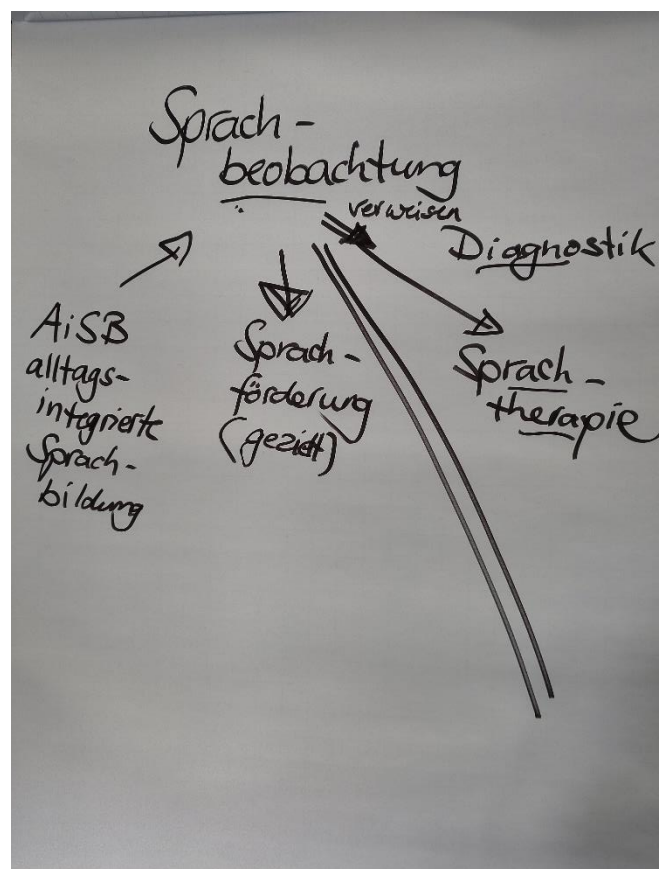 Sprach-
beobachtung
verweisen
Diagnostik
AiSB
alltags-
integrierte
Sprach-
bildung
Sprach-
förderung
(gezielt)
Sprach-
therapie